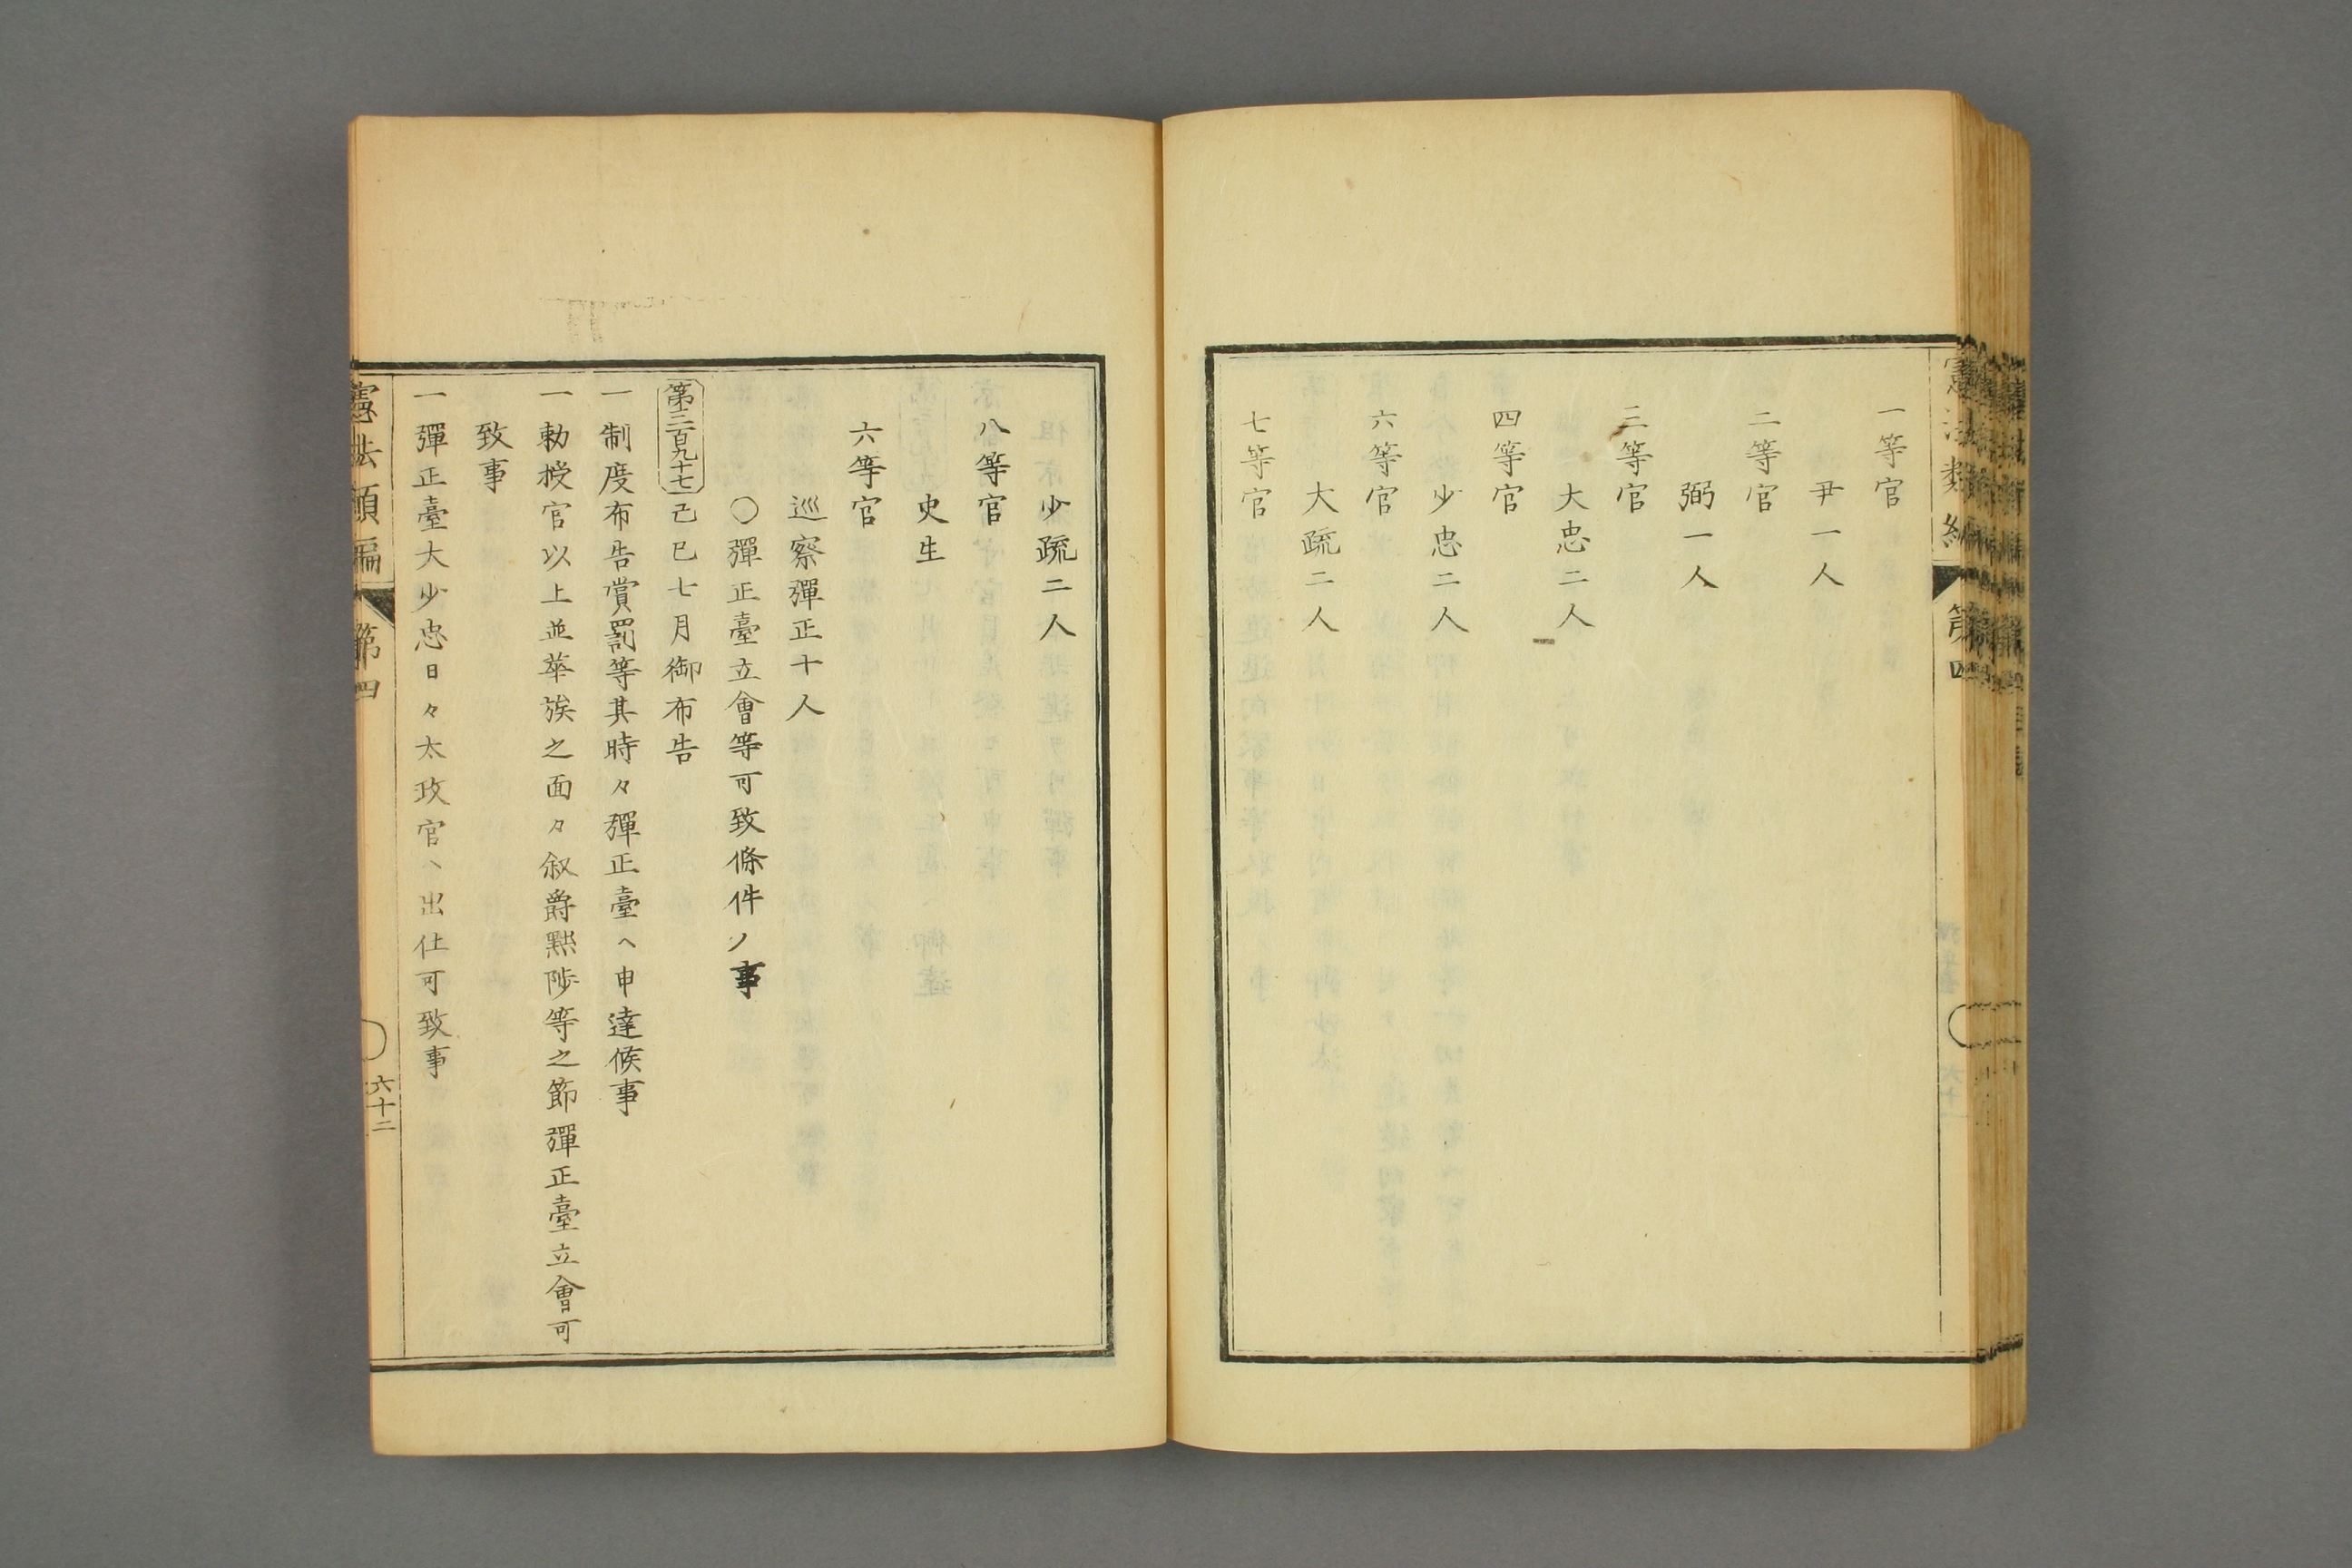 一等官
尹一人
二等官
弼一人
三等官
大忠二人
四等官
少忠二人
六等官
大疏二人
七等官
少疏二人
八等官
史生
六等官
巡察彈正十人
〇彈正臺立會等可致條件ノ事
第三百九十七 己巳七月御布告
一制度布告賞罰等其時々彈正臺ヘ申達候事
一勅授官以上並華族之面々叙爵黙陟等之節彈正臺立會可
致事
一彈正臺大少忠日々太政官ヘ出仕可致事
憲法類編 第四
六十二